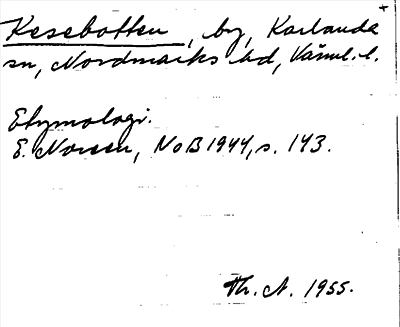 Kesebotten, by, Karlanda
sn, Nordmarks hd, Värml. l.
Etymologi.
E. Noreen, NoB 1944, s. 143.
Th. N. 1955.